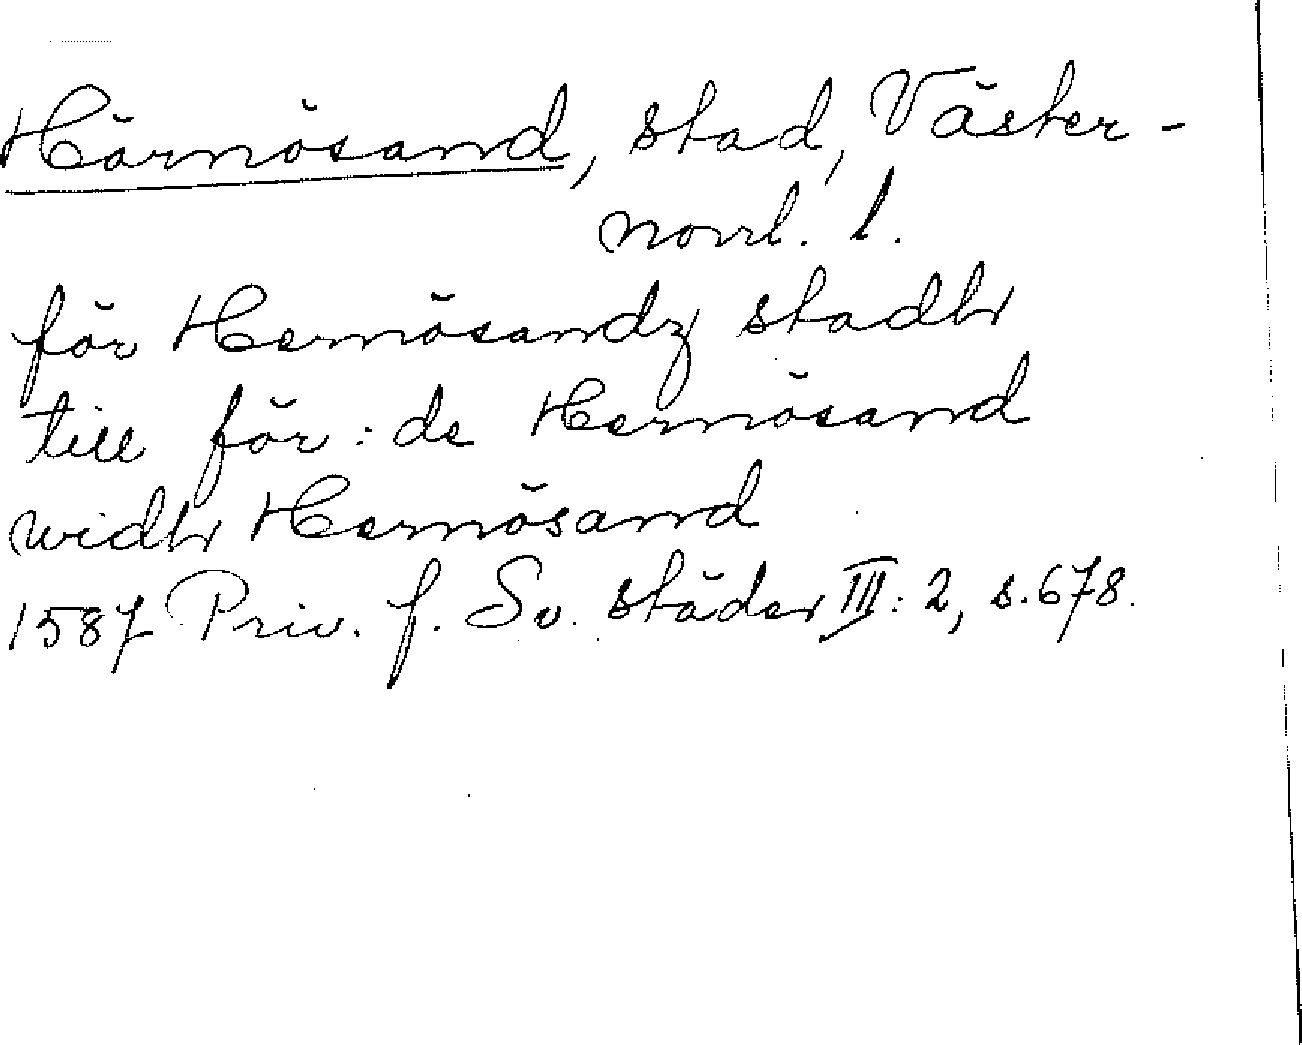 Härnösand, stad, Väster-
norrl. l.
för Hernösandz stadh
till för: de Hernösand
widh Hernösand
1587 Priv. f. Sv. städer III: 2, s. 678.